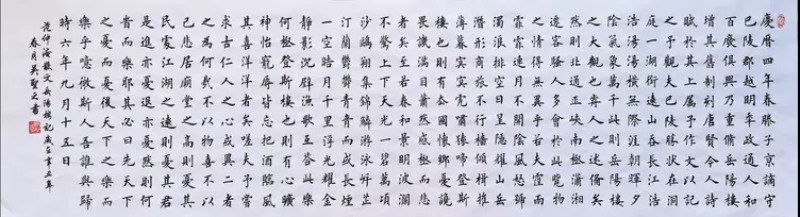 慶曆四年春滕子京謫守
巴陵郡越明年政通人和
百廢俱興乃重修岳陽樓
增其舊制刻唐賢今人詩
賦於其上屬予作文以記
之予觀夫巴陵勝狀在洞
庭一湖銜遠山吞長江浩
浩湯湯橫無際涯朝暉夕
陰氣象萬千此則岳陽樓
之大觀也前人之述備矣
然則北通巫峽南極瀟湘
遷客騷人多會於此覽物
之情得無異乎若夫霪雨
霏霏連月不開陰風怒號
濁浪排空日星隱耀山岳
潛形商旅不行檣傾楫摧
薄暮冥冥虎嘯猿啼登斯
樓也則有去國懷鄉憂讒
畏譏滿目蕭然感極而悲
者矣至若春和景明波瀾
不驚上下天光一碧萬頃
沙鷗翔集錦鱗游泳岸芷
汀蘭鬱鬱青青而或長煙
一空皓月千里浮光耀金
靜影沉璧漁歌互答此樂
何極登斯樓也則有心曠
神怡寵辱皆忘把酒臨風
其喜洋洋者矣嗟夫予嘗
求古仁人之心或異二者
之為何哉不以物喜不以
己悲居廟堂之高則憂其
民處江湖之遠則憂其君
是進亦憂退亦憂然則何
時而樂耶其必曰先天下
之憂而憂後天下之樂而
樂乎噫微斯人吾誰與歸
時六年九月十五日
范仲淹散文岳陽樓記歲在辛丑年
春月吳聖之書